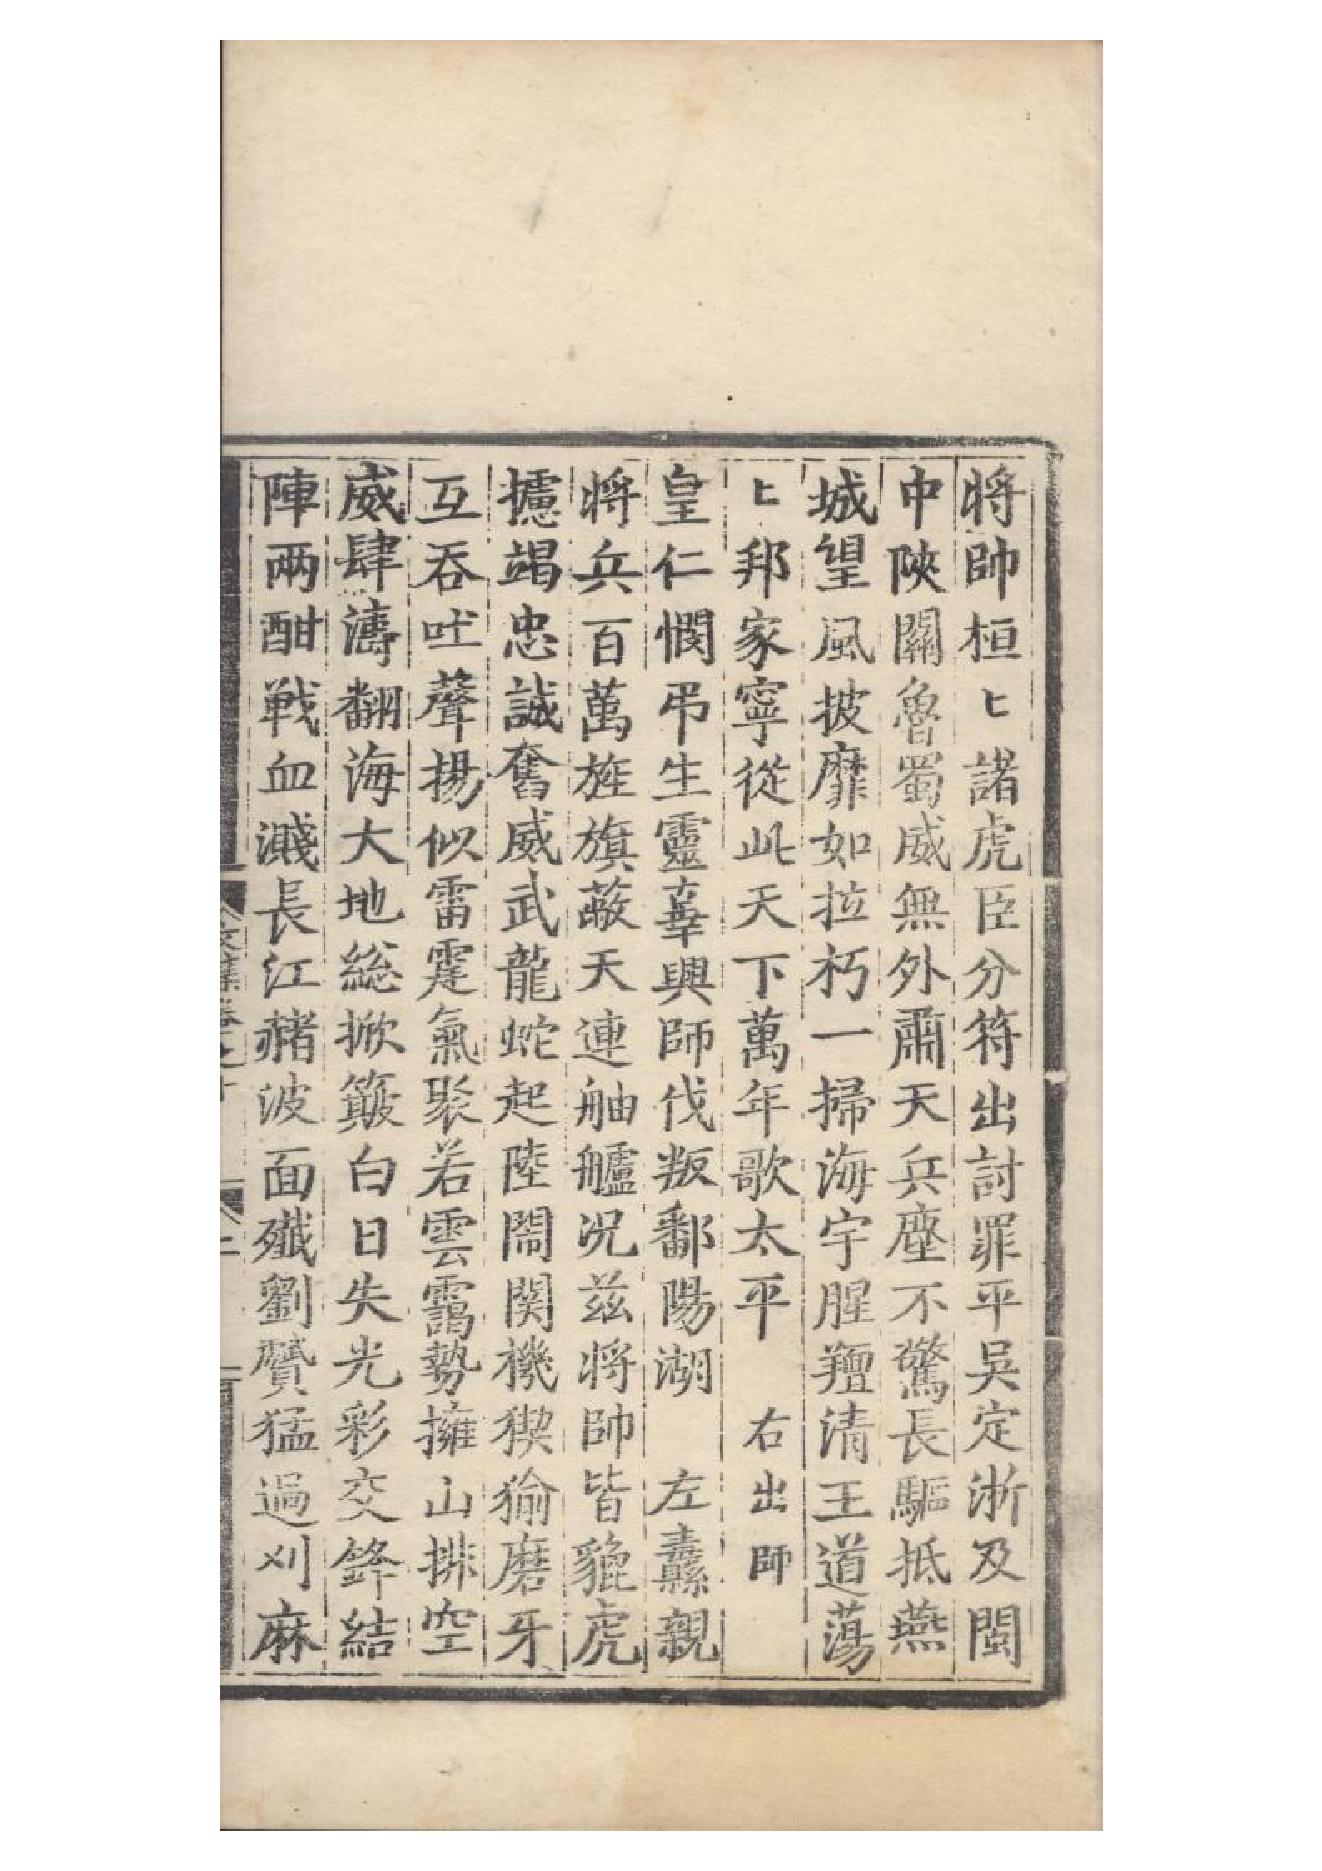 将帥桓〻諸虎臣分符出討罪平吳定浙及閩
中陜關魯蜀威無外肅天兵塵不驚長驅抵燕
城望風披靡如拉朽一掃海宇腥羶清王道蕩
〻邦家寧從此天下萬年歌太平　右出師
皇仁憫弔生靈辜興師伐叛鄱陽湖　左纛親
将兵百萬旌旗蔽天連舳艫况兹将帥皆貔虎
攄竭忠誠奮威武龍蛇起陸鬧関機猰㺄磨牙
互吞吐聲揚似雷霆氣聚若雲靄勢擁山排空
威肆濤翻海大地総掀簸白日失光彩交鋒結
陣兩酣戦血濺長江赭波面殱劉贇猛過刈麻